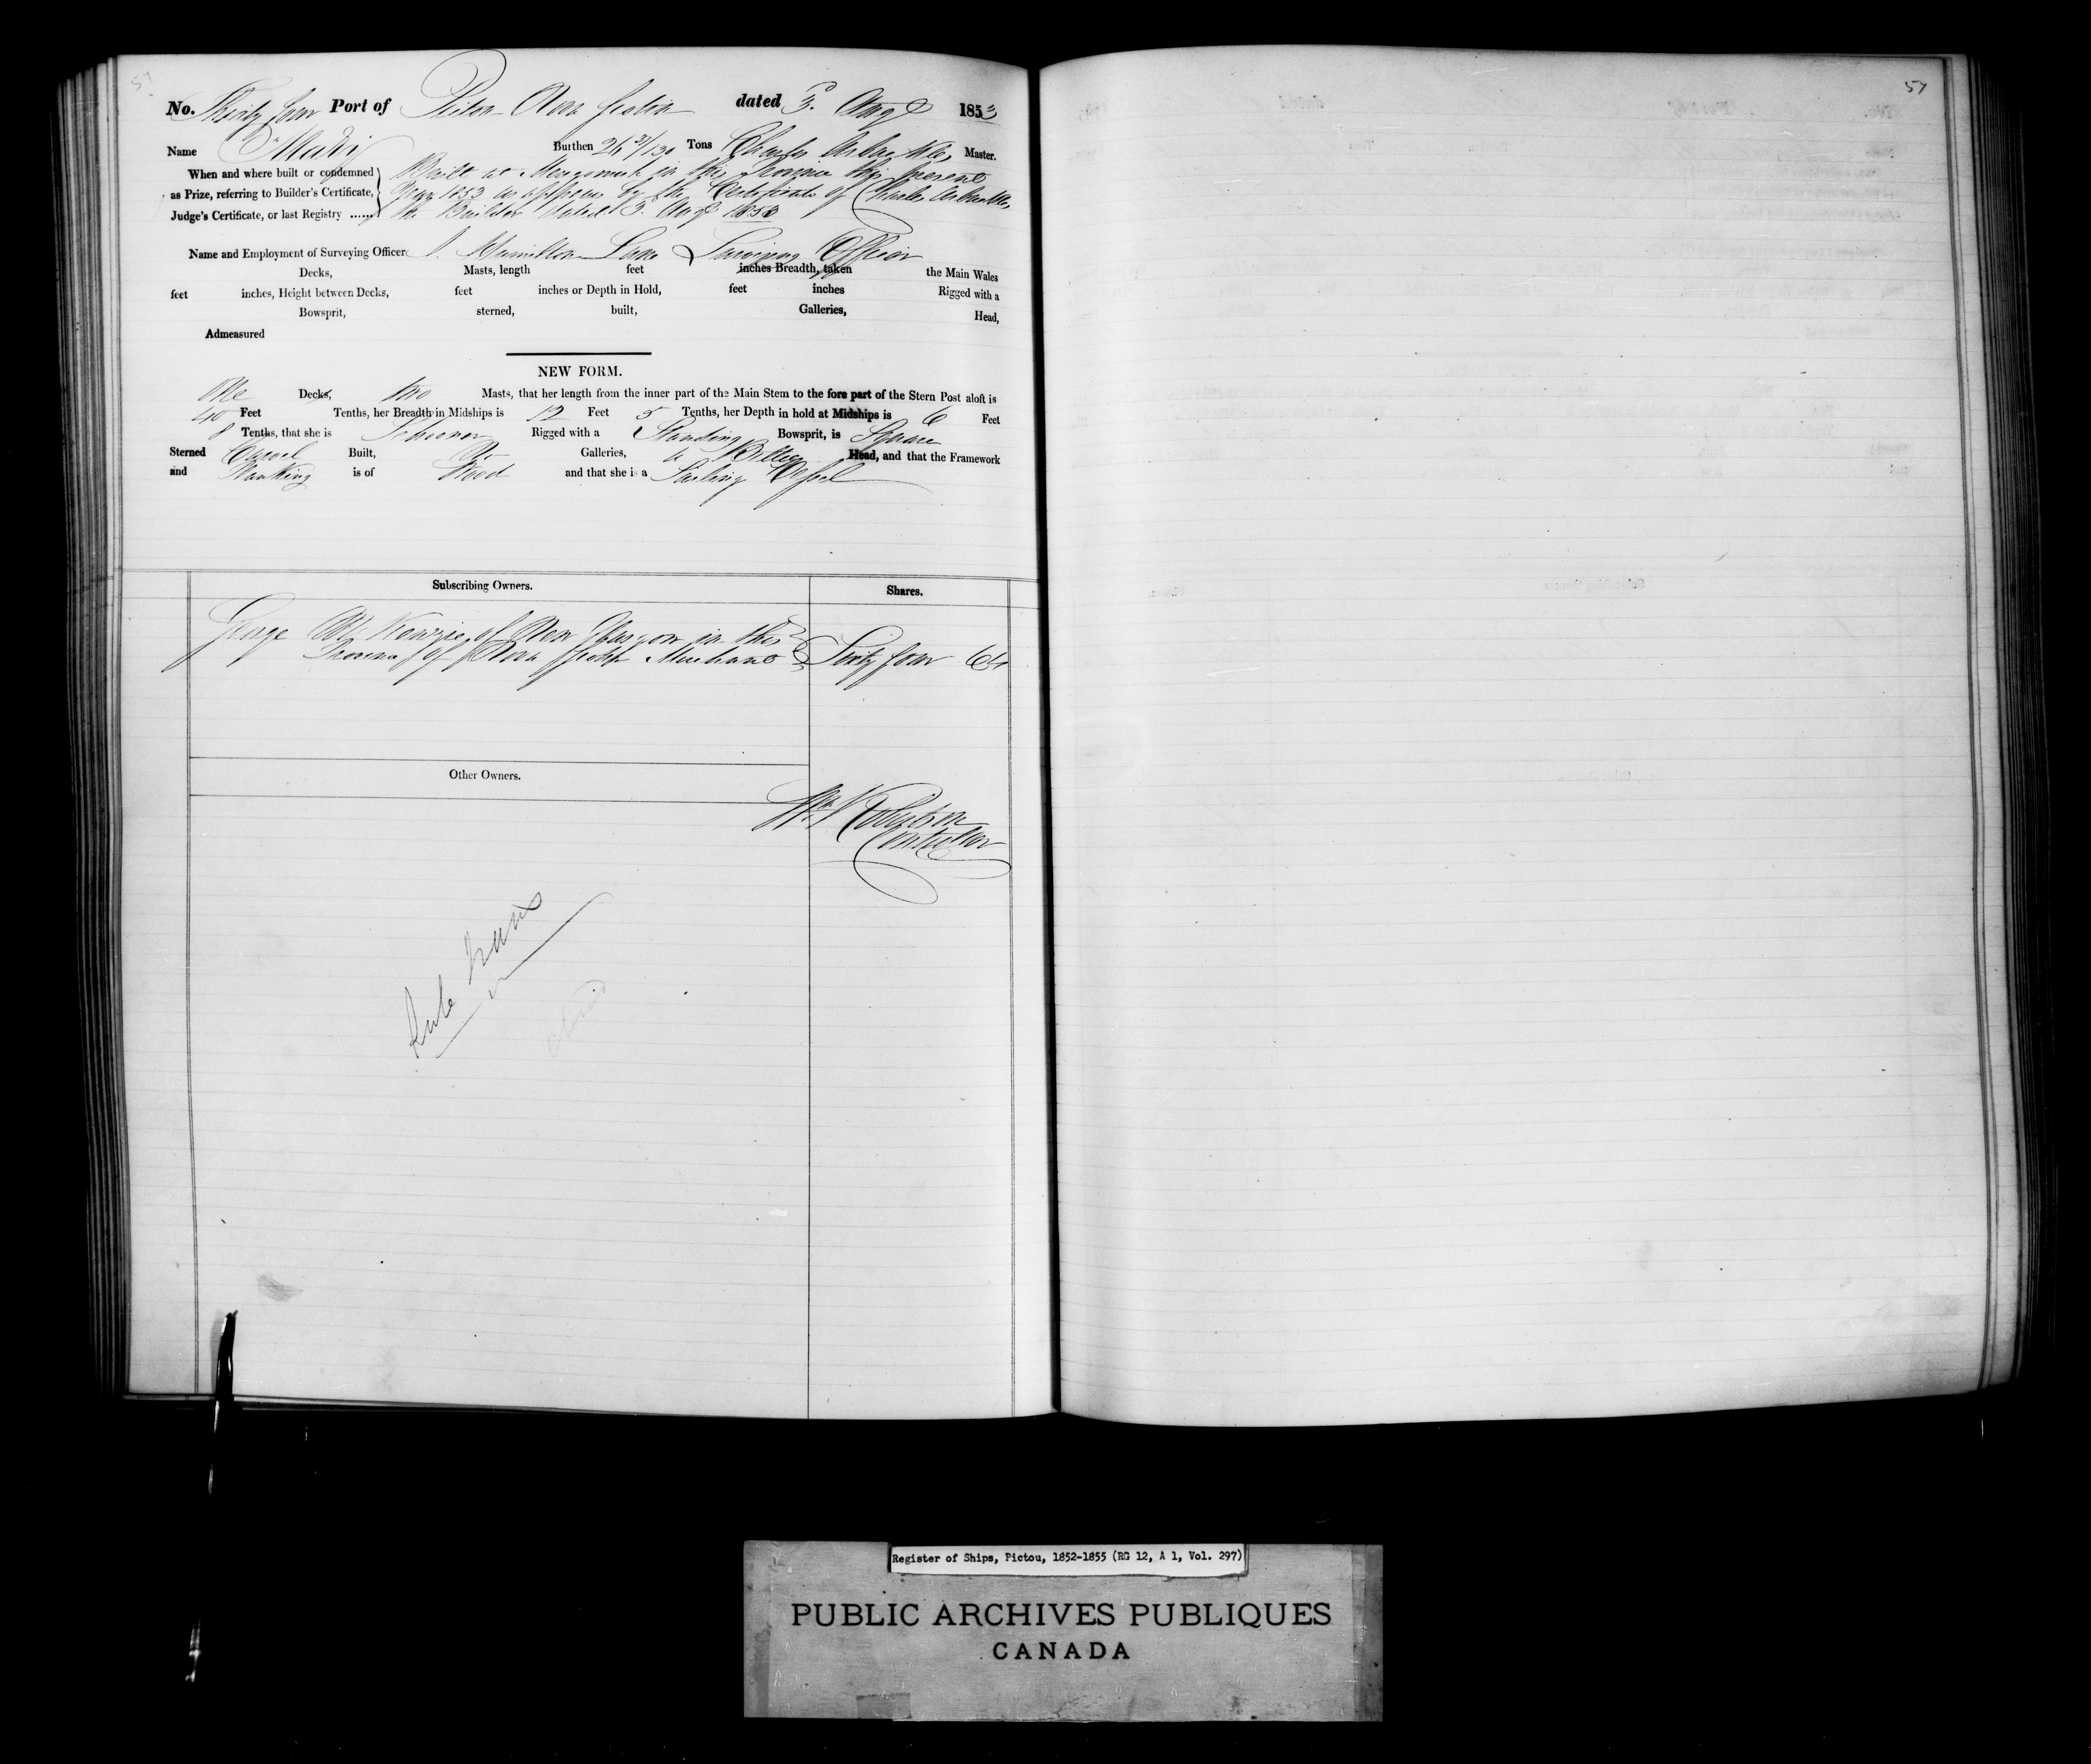 57
No. Thirty four Port of Pictou Nova Scotia dated 3d. Augt 1853
Name "Mary" Burthen 26 Tons Charles Arbuckle, Master.
When and where built or condemned Built at Merigomish in this Province this present
as Prize, referring to Builder's Certificate, Year 1853 as appears by the Certificate of Charles Arbuckle,
Judge's Certificate, or last Registry ...... the Builder dated 3d. Augt 1853
Name and Employment of Surveying Officer J. Hamilton Lane Surveying Officer
Decks, Masts, length feet inches Breadth, taken the Main Wales
feet inches, Height between Decks, feet inches or Depth in Hold, feet inches Rigged with a
Bowsprit, sterned, built, Galleries, Head,
Admeasured
NEW FORM.
One Decks, two Masts, that her length from the inner part of the Main Stem to the fore part of the Stern Post aloft is
40 Feet Tenths, her Breadth in Midships is 12 Feet 5 Tenths, her Depth in hold at Midships is 6 Feet
8 Tenths, that she is Schooner Rigged with a Standing Bowsprit, is Square
Sterned Carvel Built, No Galleries, a Billet Head, and that the Framework
and Planking is of Wood and that she is a Sailing Vessel
Subscribing Owners. Shares.
George McKenzie of New Glasgow in the
Province of Nova Scotia Merchant Sixty four 64
Other Owners.
Robertson
Controller
closed
57
Register of Ships, Pictou, 1852-1855 (RG 12, A 1, Vol. 297)
PUBLIC ARCHIVES PUBLIQUES
CANADA